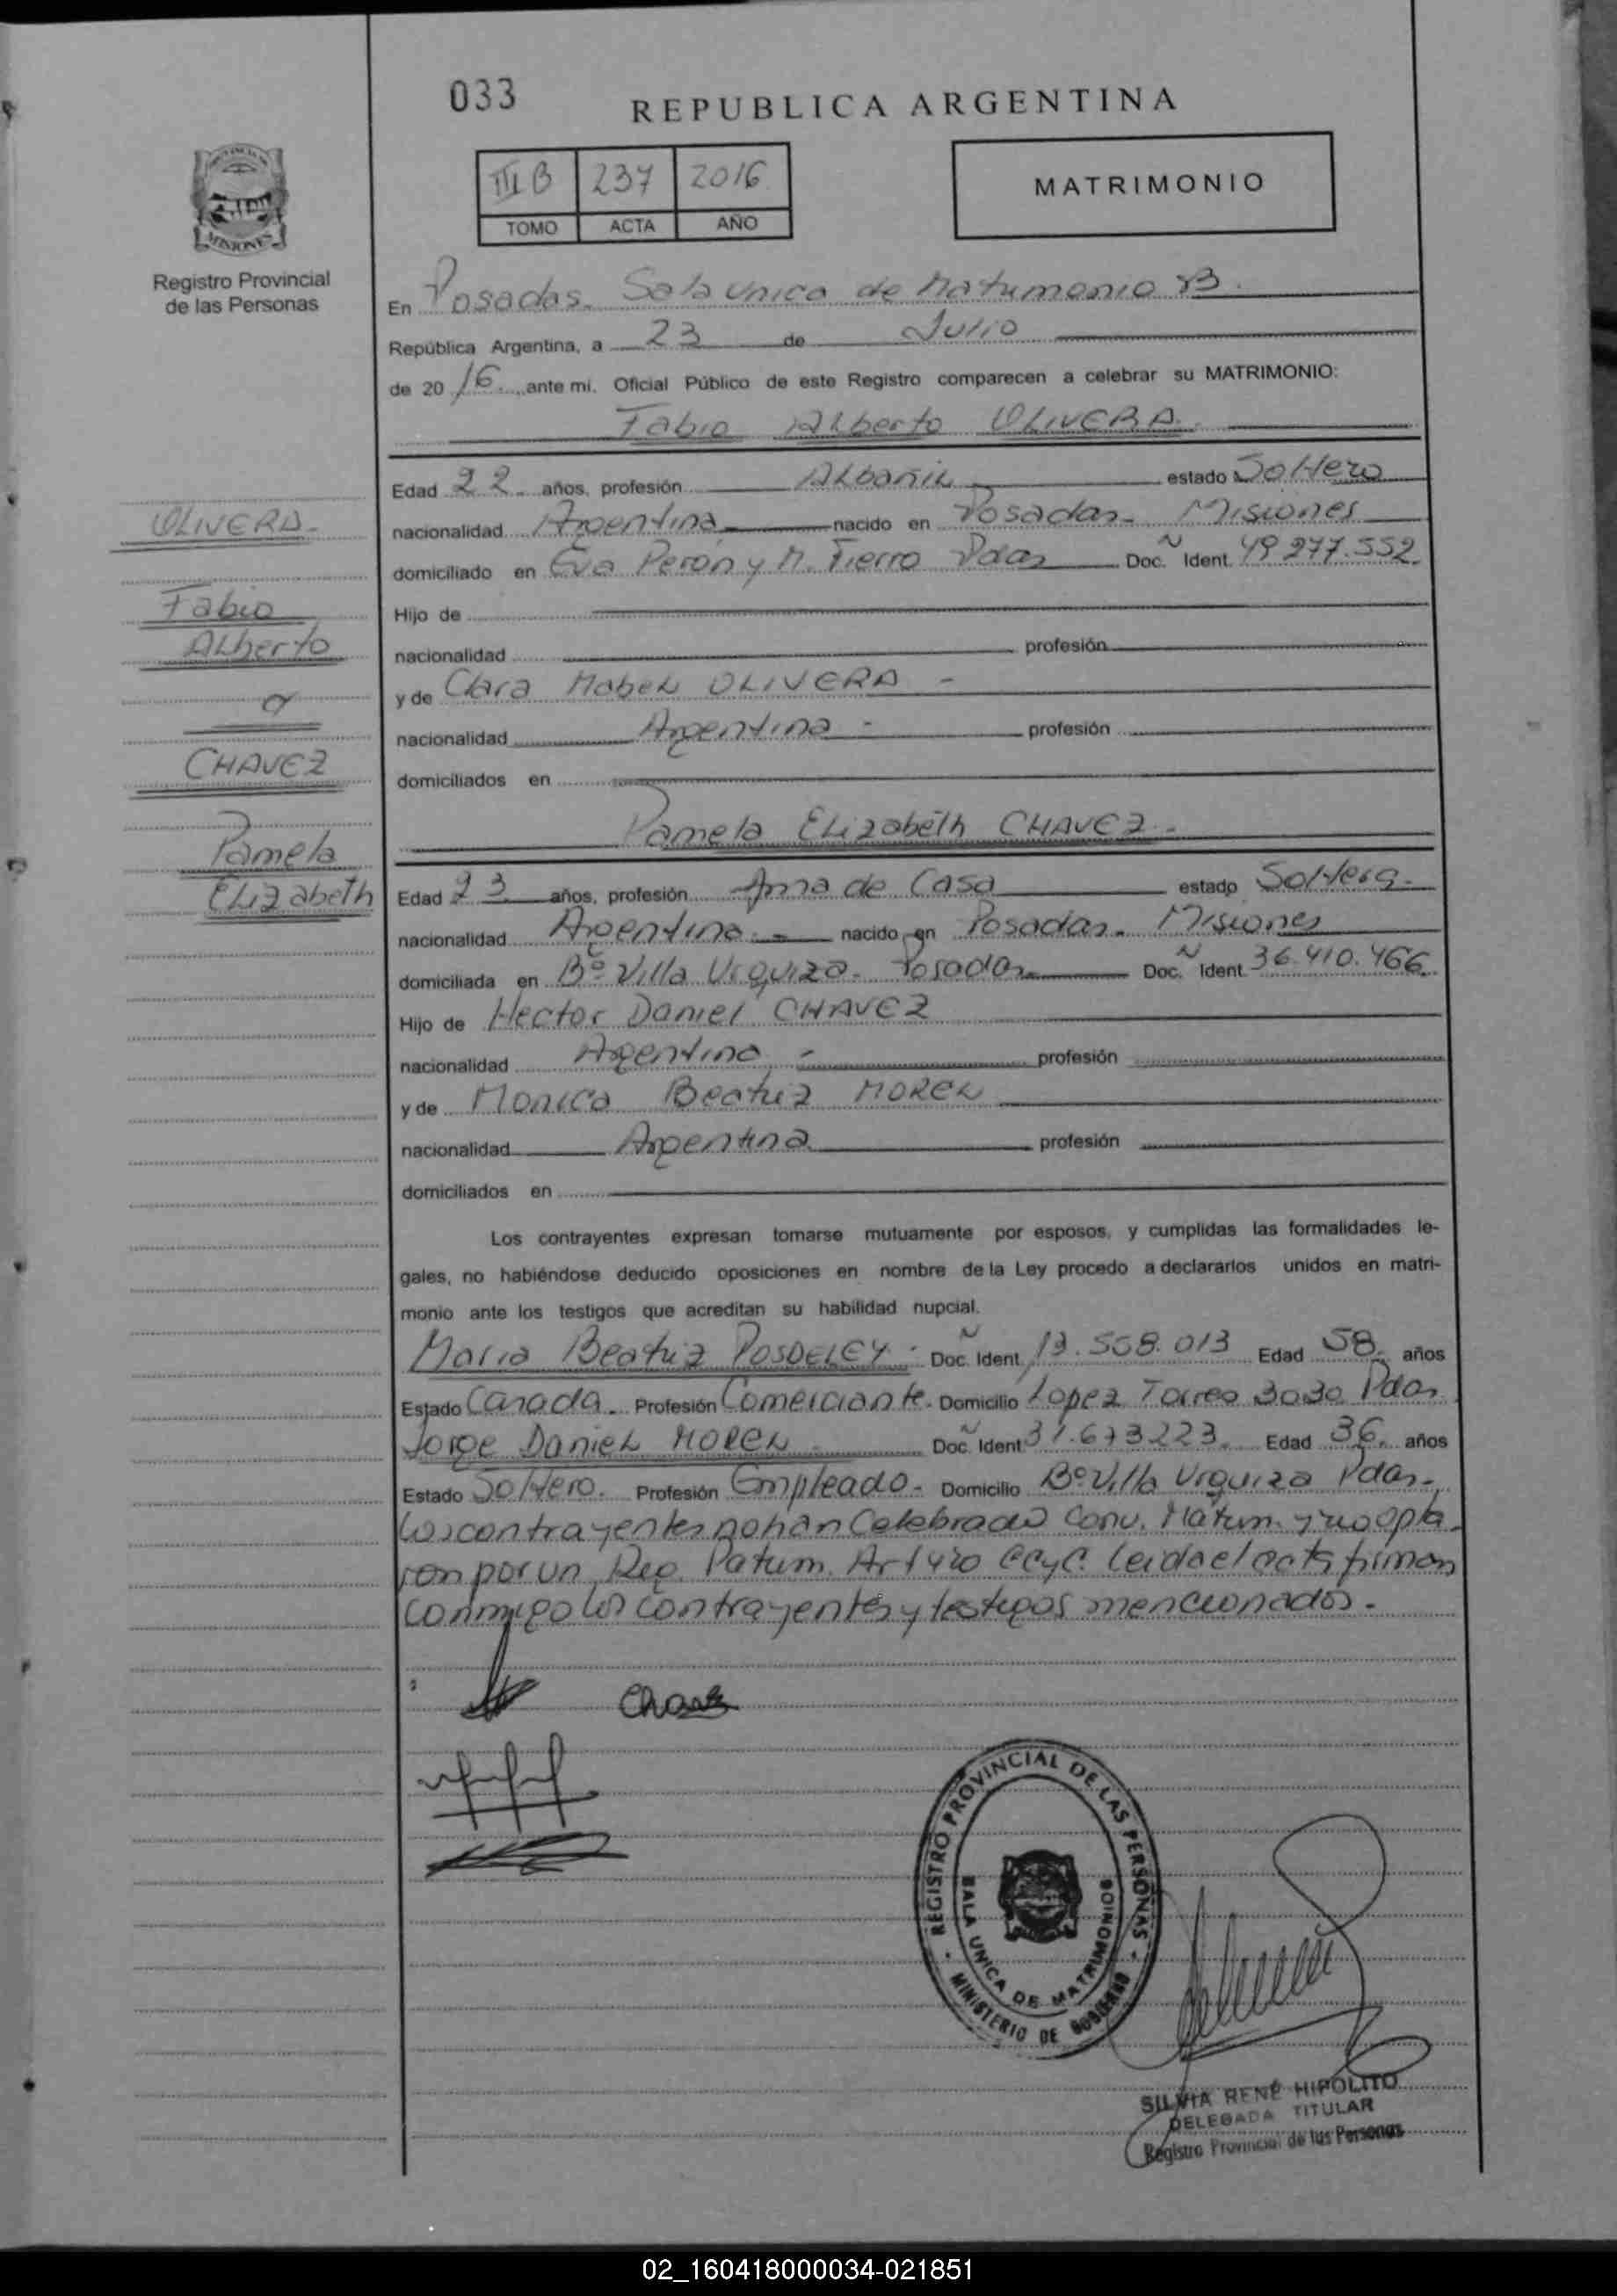 033
REPUBLICA ARGENTINA
III B 237 2016
TOMO ACTA AÑO
MATRIMONIO
PROVINCIA DE
MISIONES
Registro Provincial
de las Personas
En Posadas. Sala Unica de Matrimonio
República Argentina, a 23 de Julio
de 2016, ante mi. Oficial Público de este Registro comparecen a celebrar su MATRIMONIO:
Fabio Alberto OLIVERA.
Edad 22 años, profesión Albañil estado Soltero
OLIVERA-
nacionalidad Argentina nacido en Posadas- Misiones
domiciliado en Eva Perón y M. Fierro Pdas Doc. Ident. 49 277.552
Fabio
Hijo de
Alberto
nacionalidad profesión
y de Clara Mabel OLIVERA -
nacionalidad Argentina - profesión
CHAVEZ
domiciliados en
Pamela Elizabeth CHAVEZ-
Pamela
Elizabeth
Edad 23 años, profesión Ama de Casa estado Soltera-
nacionalidad Argentina- nacido en Posadas- Misiones
domiciliada en Bº Villa Urquiza- Posadas Doc. Ident. 36.410.466
Hijo de Hector Daniel CHAVEZ
nacionalidad Argentina - profesión
y de Monica Beatriz MOREL
nacionalidad Argentina profesión
domiciliados en
Los contrayentes expresan tomarse mutuamente por esposos, y cumplidas las formalidades le-
gales, no habiéndose deducido oposiciones en nombre de la Ley procedo a declararlos unidos en matri-
monio ante los testigos que acreditan su habilidad nupcial.
Maria Beatriz POSDELEY- Doc. Ident. 13.558.013 Edad 58 años
Estado Casada. Profesión Comerciante. Domicilio Lopez Torres 3030 Pdas
Jorge Daniel MOREL Doc. Ident 31.673223. Edad 36 años
Estado Soltero. Profesión Empleado- Domicilio Bº Villa Urquiza Pdas-
Los contrayentes no han Celebrado Conv. Matrim. y no opta-
ron por un Reg. Patrim. Art 420 CCyC. Leida el acta firman
conmigo los contrayentes y testigos mencionados.
REGISTRO PROVINCIAL DE LAS PERSONAS
SALA UNICA DE MATRIMONIOS
MINISTERIO DE GOBIERNO
SILVIA RENÉ HIPOLITO
DELEGADA TITULAR
Registro Provincial de las Personas
02_160418000034-021851